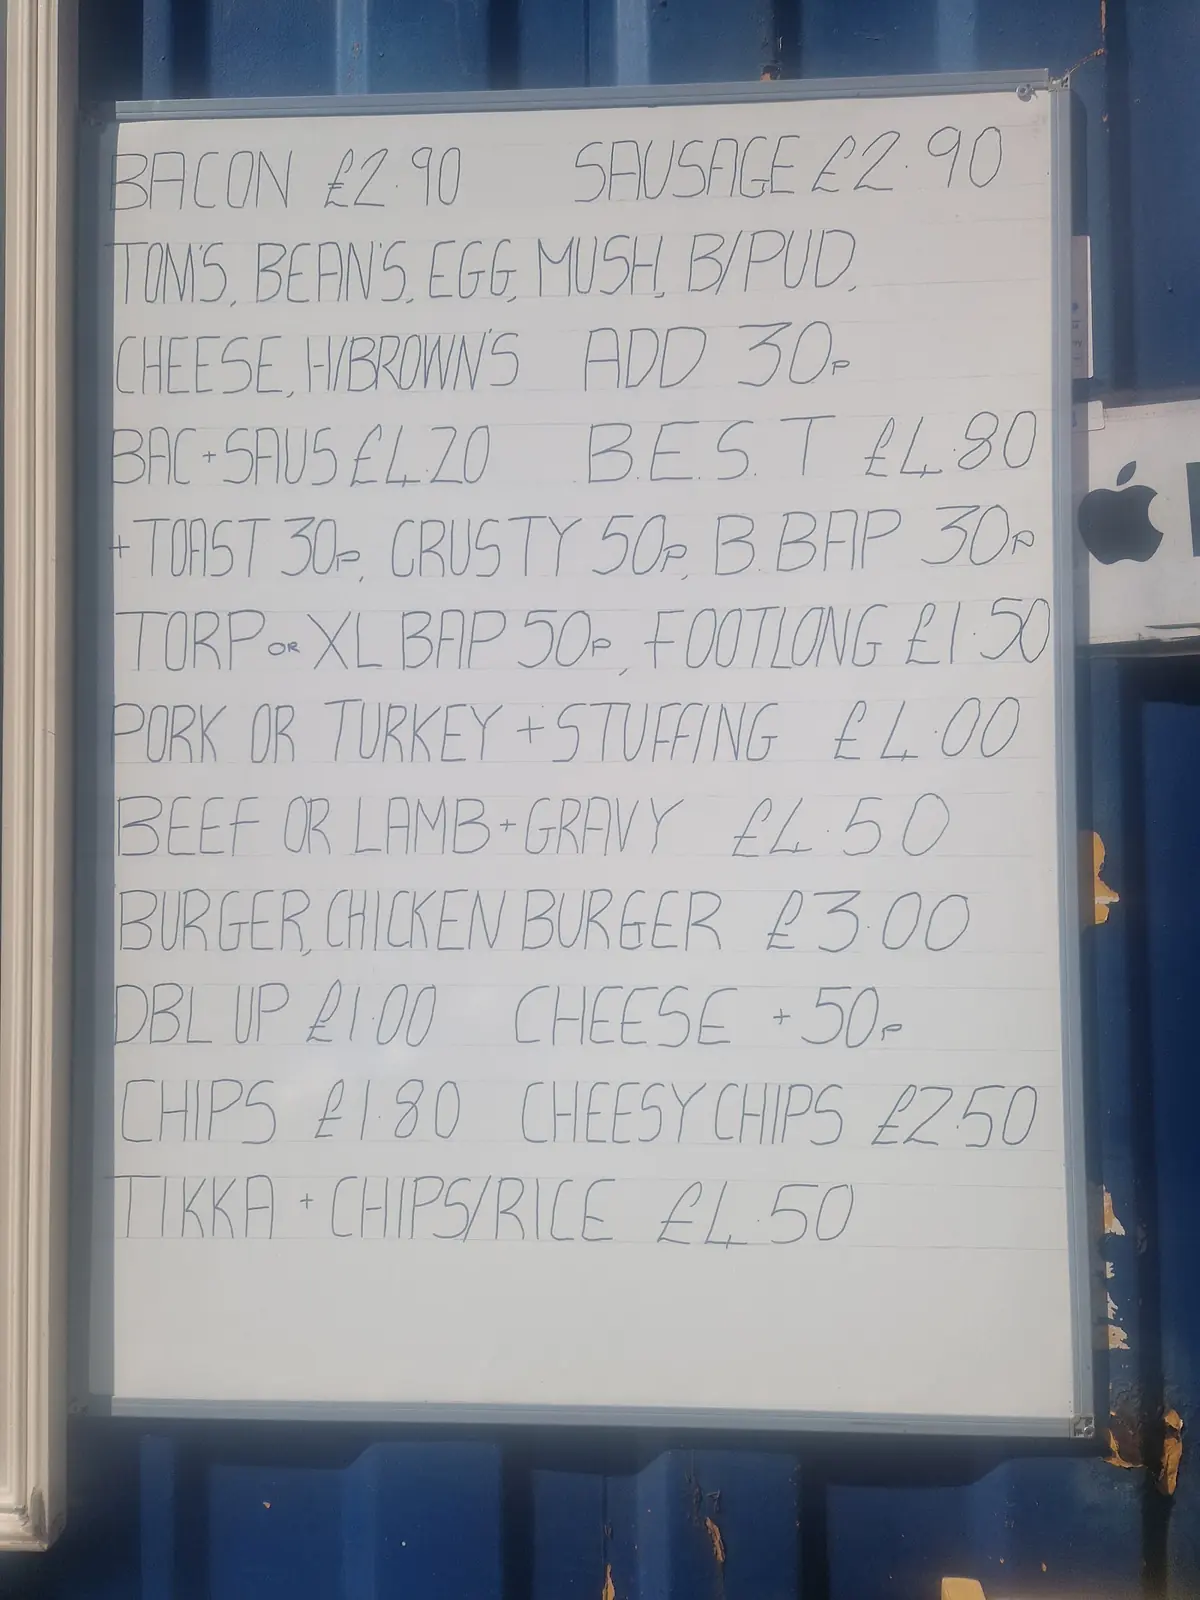 BACON £2.90 SAUSAGE £2.90
TOM'S, BEAN'S, EGG, MUSH, B/PUD,
CHEESE, H/BROWN'S ADD 30p
BAC + SAUS £4.20 B.E.S.T £4.80
+ TOAST 30p, CRUSTY 50p, B.BAP 30p
TORP OR XL BAP 50p, FOOTLONG £1.50
PORK OR TURKEY + STUFFING £4.00
BEEF OR LAMB + GRAVY £4.50
BURGER, CHICKEN BURGER £3.00
DBL UP £1.00 CHEESE + 50p
CHIPS £1.80 CHEESY CHIPS £2.50
TIKKA + CHIPS/RICE £4.50